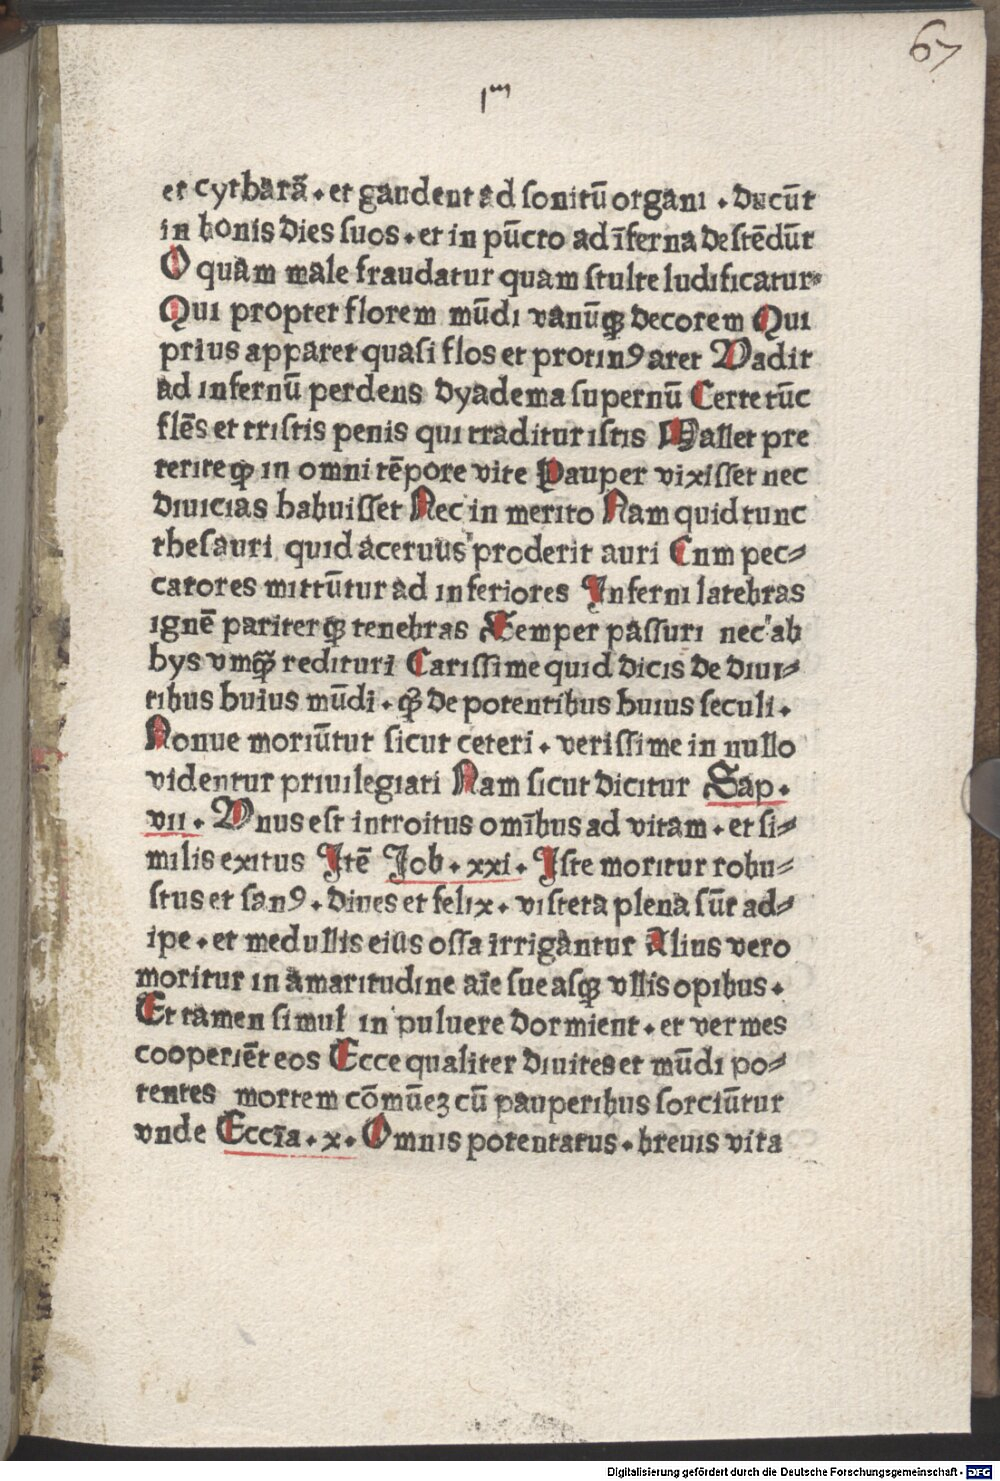 67
et cytharā . et gaudent ad sonitū organi . ducūt
in bonis dies suos . et in pūcto ad īferna destēdūt
O quam male fraudatur quam stulte ludificatur
Qui propter florem mūdi vanūqꝫ decorem Qui
prius apparet quasi flos et protinꝰ aret Vadit
ad infernū perdens dyadema supernū Certe tūc
flēs et tristis penis qui traditur istis Mallet pre
teriteqꝫ in omni tēpore vite Pauper vixisset nec
diuicias habuisset Nec in merito Nam quid tunc
thesauri quid aceruus proderit auri Cnm pec⸗
catores mittūtur ad inferiores Inferni latebras
ignē pariterqꝫ tenebras Semper passuri nec ab
hys vmqꝫ redituri Carissime quid dicis de diui⸗
tibus huius mūdi . qꝫ de potentibus huius seculi .
Nonue moriūtur sicut ceteri . verissime in nullo
videntur priuilegiati Nam sicut dicitur Sap .
vii . Vnus est introitus omībus ad vitam . et si⸗
milis exitus Itē Job . xxi . Iste moritur robu⸗
stus et sanꝰ . diues et felix . viscera plena sūt ad⸗
ipe . et medullis eius ossa irrigantur Alius vero
moritur in amaritudine aīe sue asqꝫ vllis opibus .
Et tamen simul in puluere dormient . et vermes
cooperiēt eos Ecce qualiter diuites et mūdi po⸗
tentes mortem cōmūeꝫ cū pauperibus sorciūtur
vnde Eccīa . x . Omnis potentatus . breuis vita
Digitalisierung gefördert durch die Deutsche Forschungsgemeinschaft - DFG